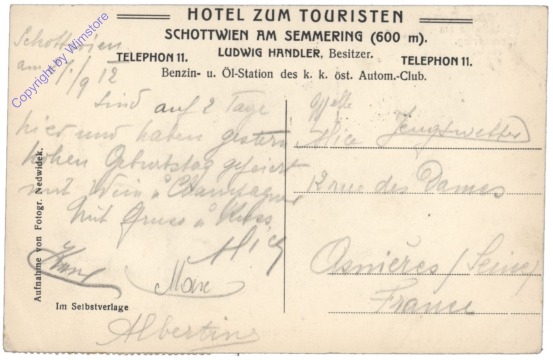 HOTEL ZUM TOURISTEN
SCHOTTWIEN AM SEMMERING (600 m).
LUDWIG HANDLER, Besitzer.
TELEPHON 11.
TELEPHON 11.
Benzin- u. Öl-Station des k. k. öst. Autom.-Club.
Schottwien
am 1/9 12
Sind auf 2 Tage
hier und haben gestern
hohen Geburtstag gefeiert
mit Wein u Champagner
Mit Gruss u Kuss
Max
Albertine
Aufnahme von Fotogr. Nedwidek.
Im Selbstverlage
rue des Dames
Asnières (Seine)
France
Copyright by Wimstore